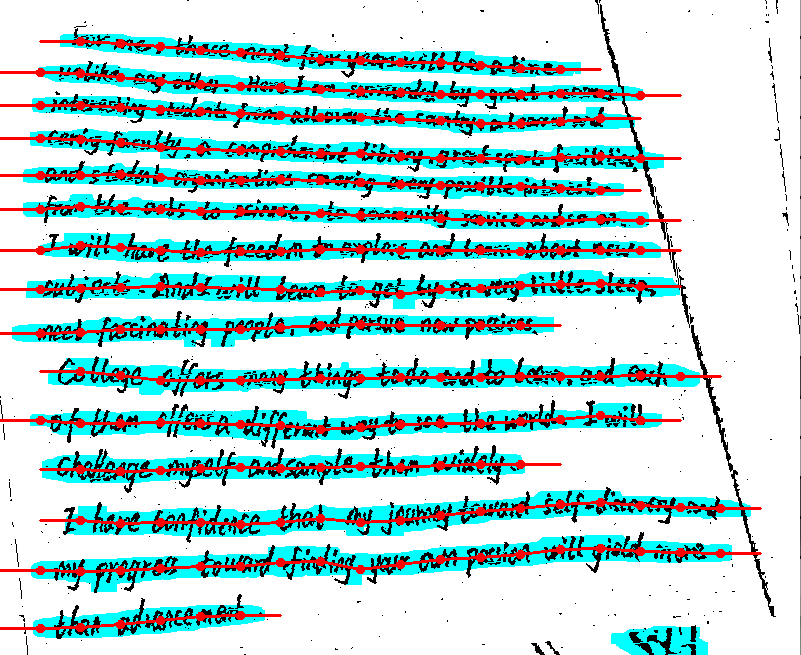 For me, these next four years will be a time
unlike any other. Here I am surrounded by great
interesting students from all over the country a learned and
caring faculty, a comprehensive library great sports facilities,
and student organizations covering every possible interest
from the arts to science, to community service and so on.
I will have the freedom to explore and learn about new
subjects. And I will learn to get by on very little sleep,
meet fascinating people, and pursue new passions.
College offers many things to do and to learn, and each
of them offers a different way to see the world. I will
challenge myself and sample them widely.
I have confidence that my journey toward self-discovery and
my progress toward finding your own passion will yield more
than advancement